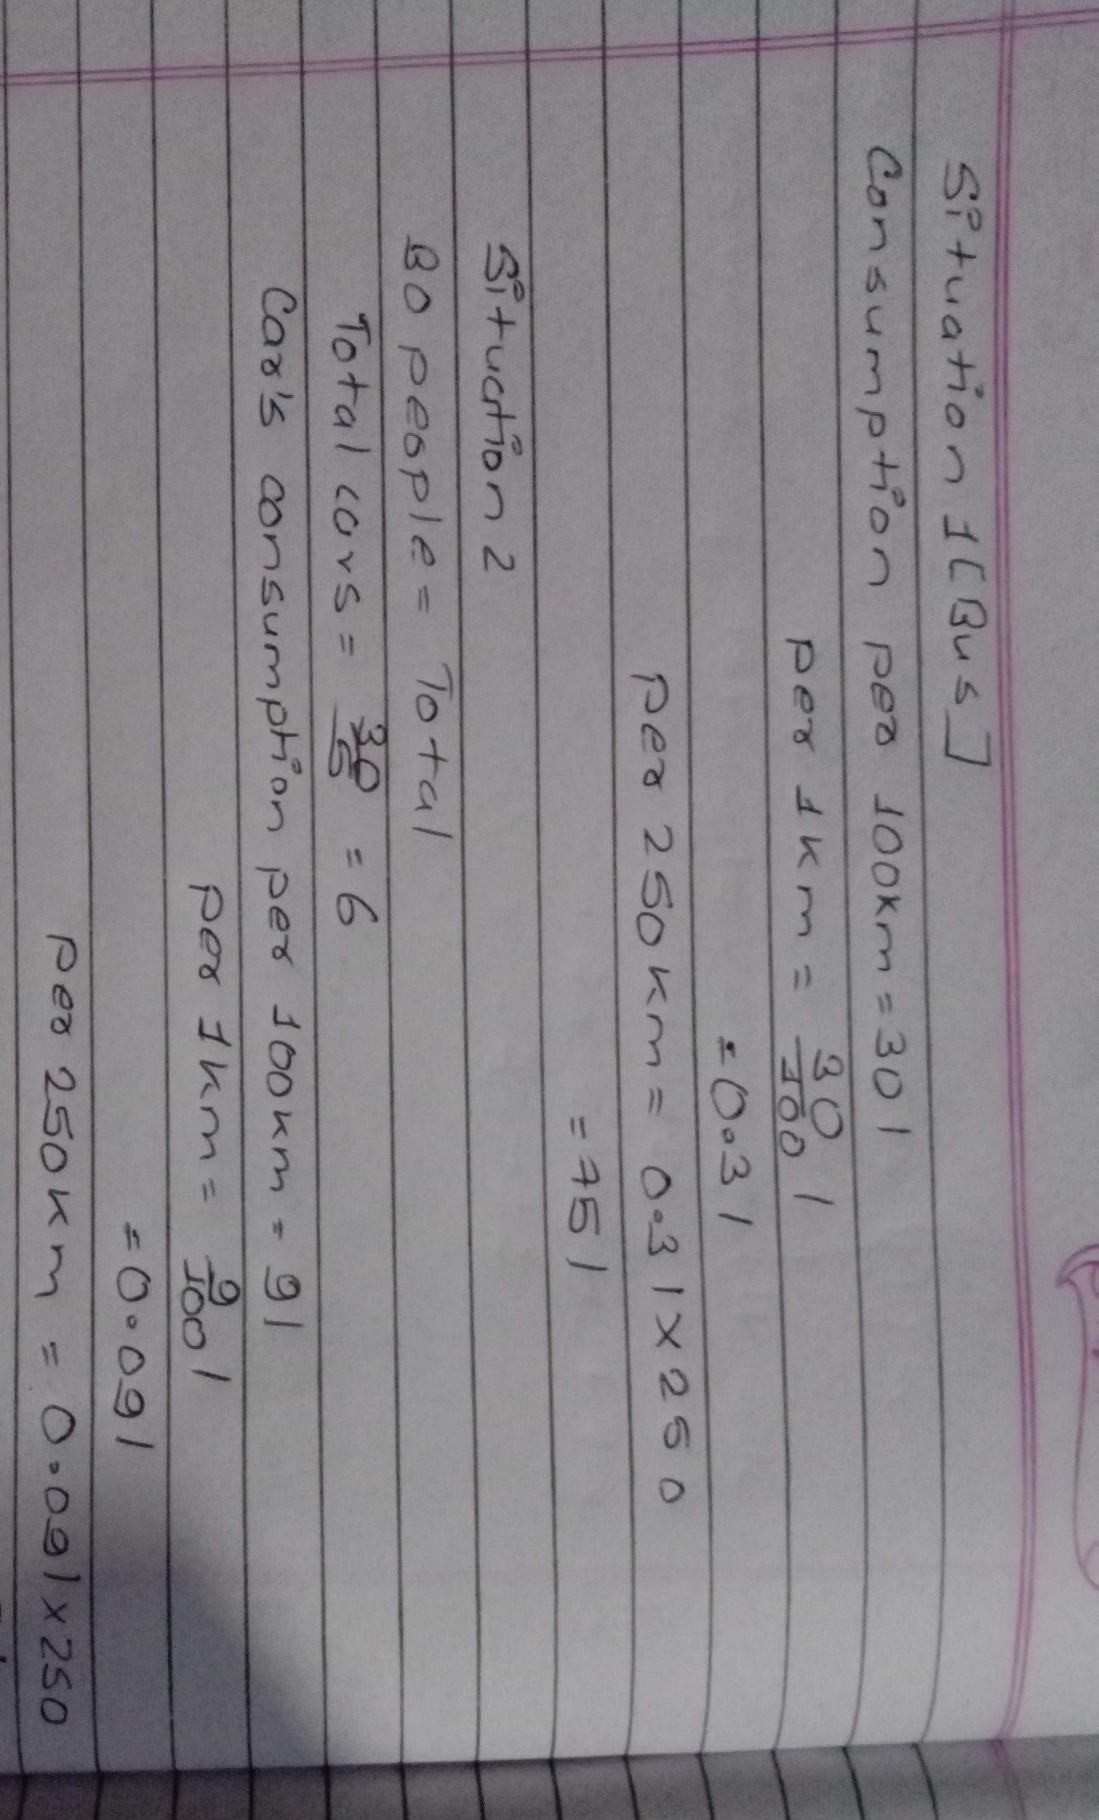 Situation 1 [Bus]
Consumption per 100km = 30 l
per 1km = 30/100 l
= 0.3 l
per 250km = 0.3 l x 250
= 75 l
Situation 2
30 people = Total
Total cars = 30/5 = 6
Car's consumption per 100km = 9 l
per 1km = 9/100 l
= 0.09 l
per 250km = 0.09 l x 250